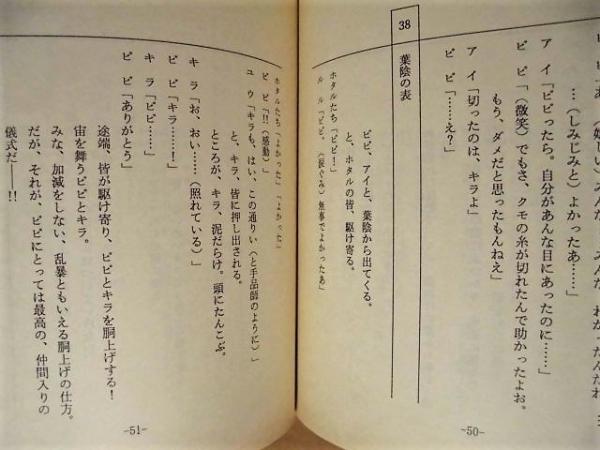 …(しみじみと)よかったあ……」
アイ「ビビったら。自分があんな目にあったのに……」
ビビ「(微笑)でもさ、クモの糸が切れたんで助かったよお。
もう、ダメだと思ったもんねえ」
アイ「切ったのは、キラよ」
ビビ「……え?」
38 葉陰の表
ビビ、アイと、葉陰から出てくる。
と、ホタルの皆、駆け寄る。
ホタルたち「ビビ!」
ルル「ビビ、(涙ぐみ)無事でよかったあ」
-50-
ホタルたち「よかった」「よかった」
ビビ「!!(感動)」
ユウ「キラも、はい、この通りい(と手品師のように)」
と、キラ、皆に押し出される。
ところが、キラ、泥だらけ。頭にたんこぶ。
キラ「お、おい……(照れている)」
ビビ「キラ……!」
キラ「ビビ……」
ビビ「ありがとう」
途端、皆が駆け寄り、ビビとキラを胴上げする!
宙を舞うビビとキラ。
みな、加減をしない、乱暴ともいえる胴上げの仕方。
だが、それが、ビビにとっては最高の、仲間入りの
儀式だ——!!
-51-